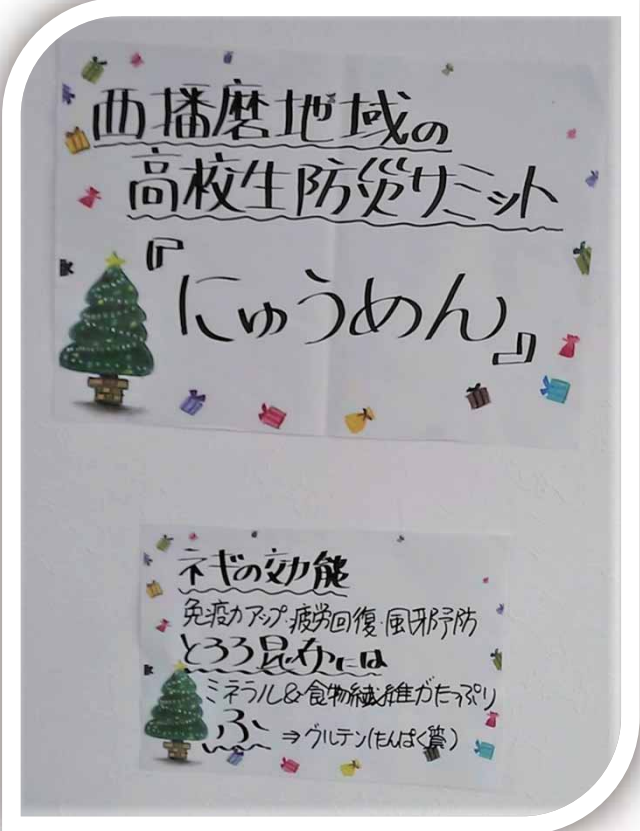 西播磨地域の
高校生防災サミット
『にゅうめん』
ネギの効能
免疫力アップ・疲労回復・風邪予防
とろろ昆布には
ミネラル&食物繊維がたっぷり
ふ ⇒グルテン(たんぱく質)